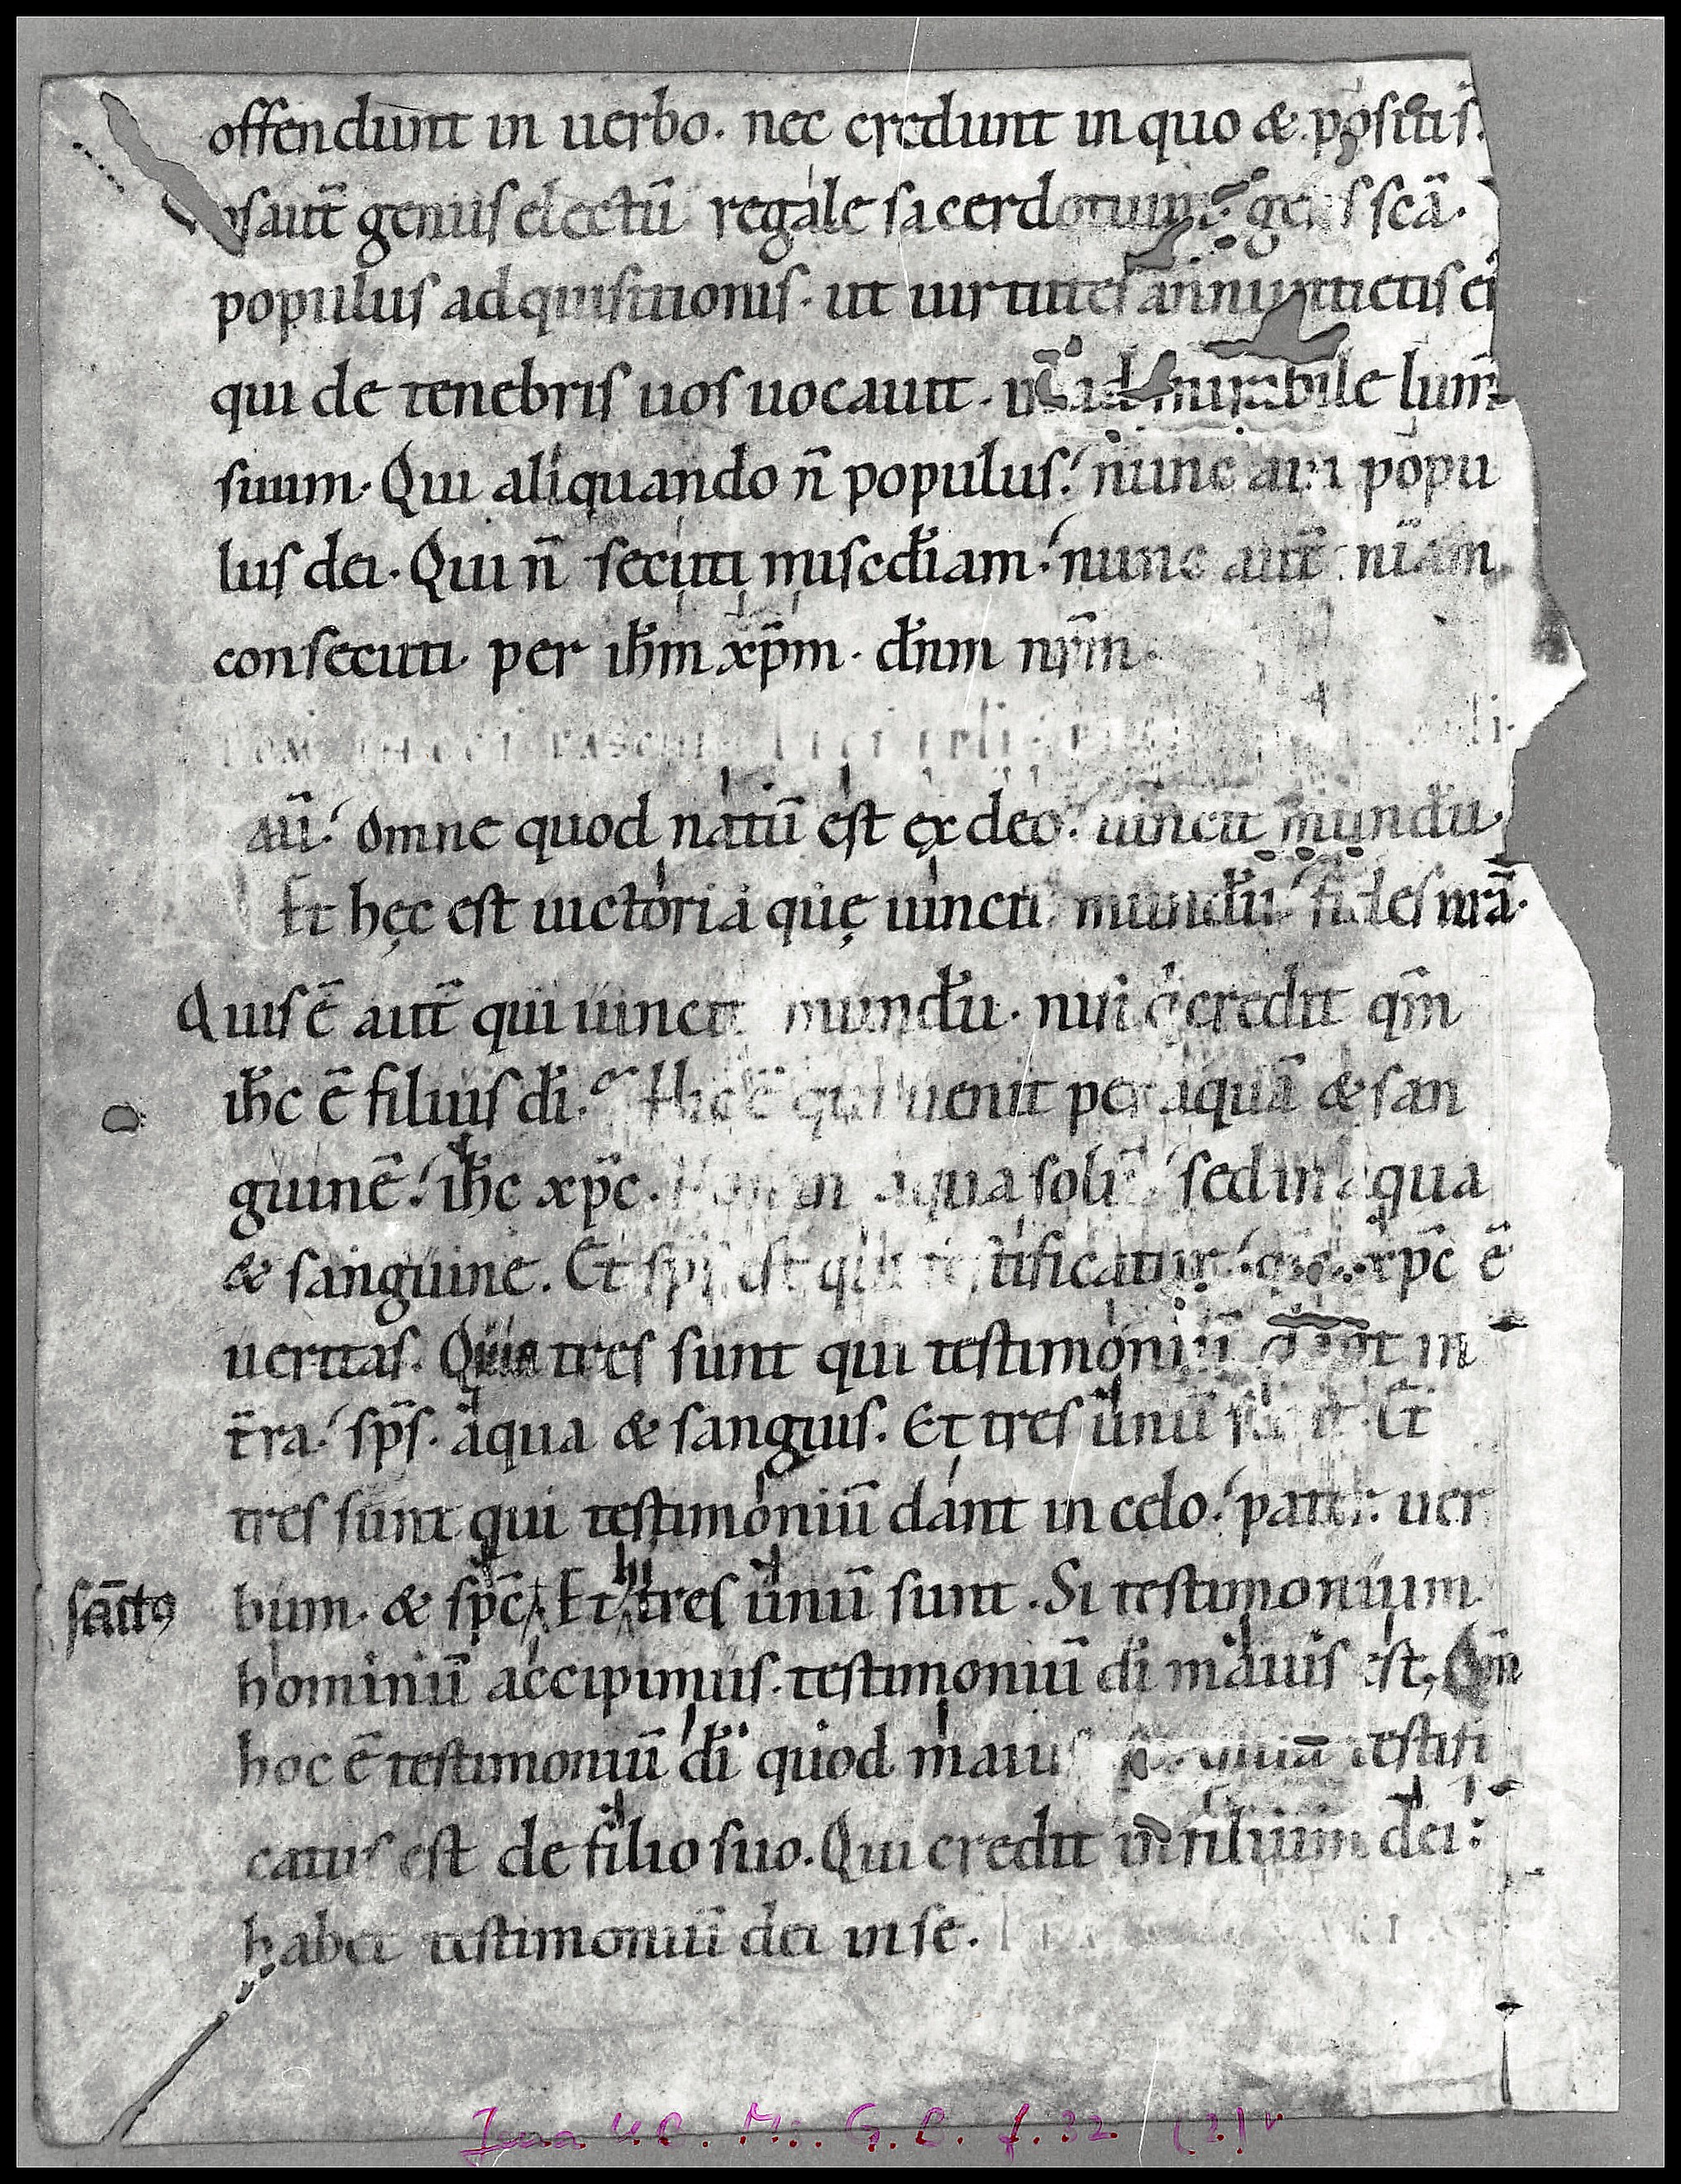 offendunt in uerbo. nec credunt in quo & positi s̄.
uos aut̄ genus electū regale sacerdotium gens scā.
populus adquisitionis. ut uirtutes annuntietis ei
qui de tenebris uos uocauit. in admirabile lum̄
suum. Qui aliquando n̄ populus. nunc aut popu
lus dei. Qui n̄ secuti misc̄diam. nunc aut̄ m̄iam
consecuti per ih̄m xp̄m. dn̄m nr̄m.
DOM OCT PASCHE
Omne quod natū est ex deo. uincit mundū.
Et hęc est uictoria quę uincit mundū fides nrā.
Quis ē aut̄ qui uincit mundū. nisi q̇ credit qm̄
ih̄c ē filius dī. Hic ē qui uenit per aquā & san
guinē. ih̄c xp̄c. Non in aqua solū sed in aqua
& sanguine. Et sp̄s est qui testificatur. xp̄c ē
ueritas. Quia tres sunt qui testimoniū dant in
t̄ra. sp̄s. aqua & sanguis. Et tres unū sunt. Et
tres sunt qui testimoniū dant in celo. pater. uer
sāct9 bum. & sp̄c Et hi tres unū sunt. Si testimonium
hominū accipimus. testimoniū dī maius est, Qm̄
hoc ē testimoniū dī quod maius quia testifi
catus est de filio suo. Qui credit in filium dei.
habet testimoniū dei in se.
Jena U.B. f. 32 (2)v